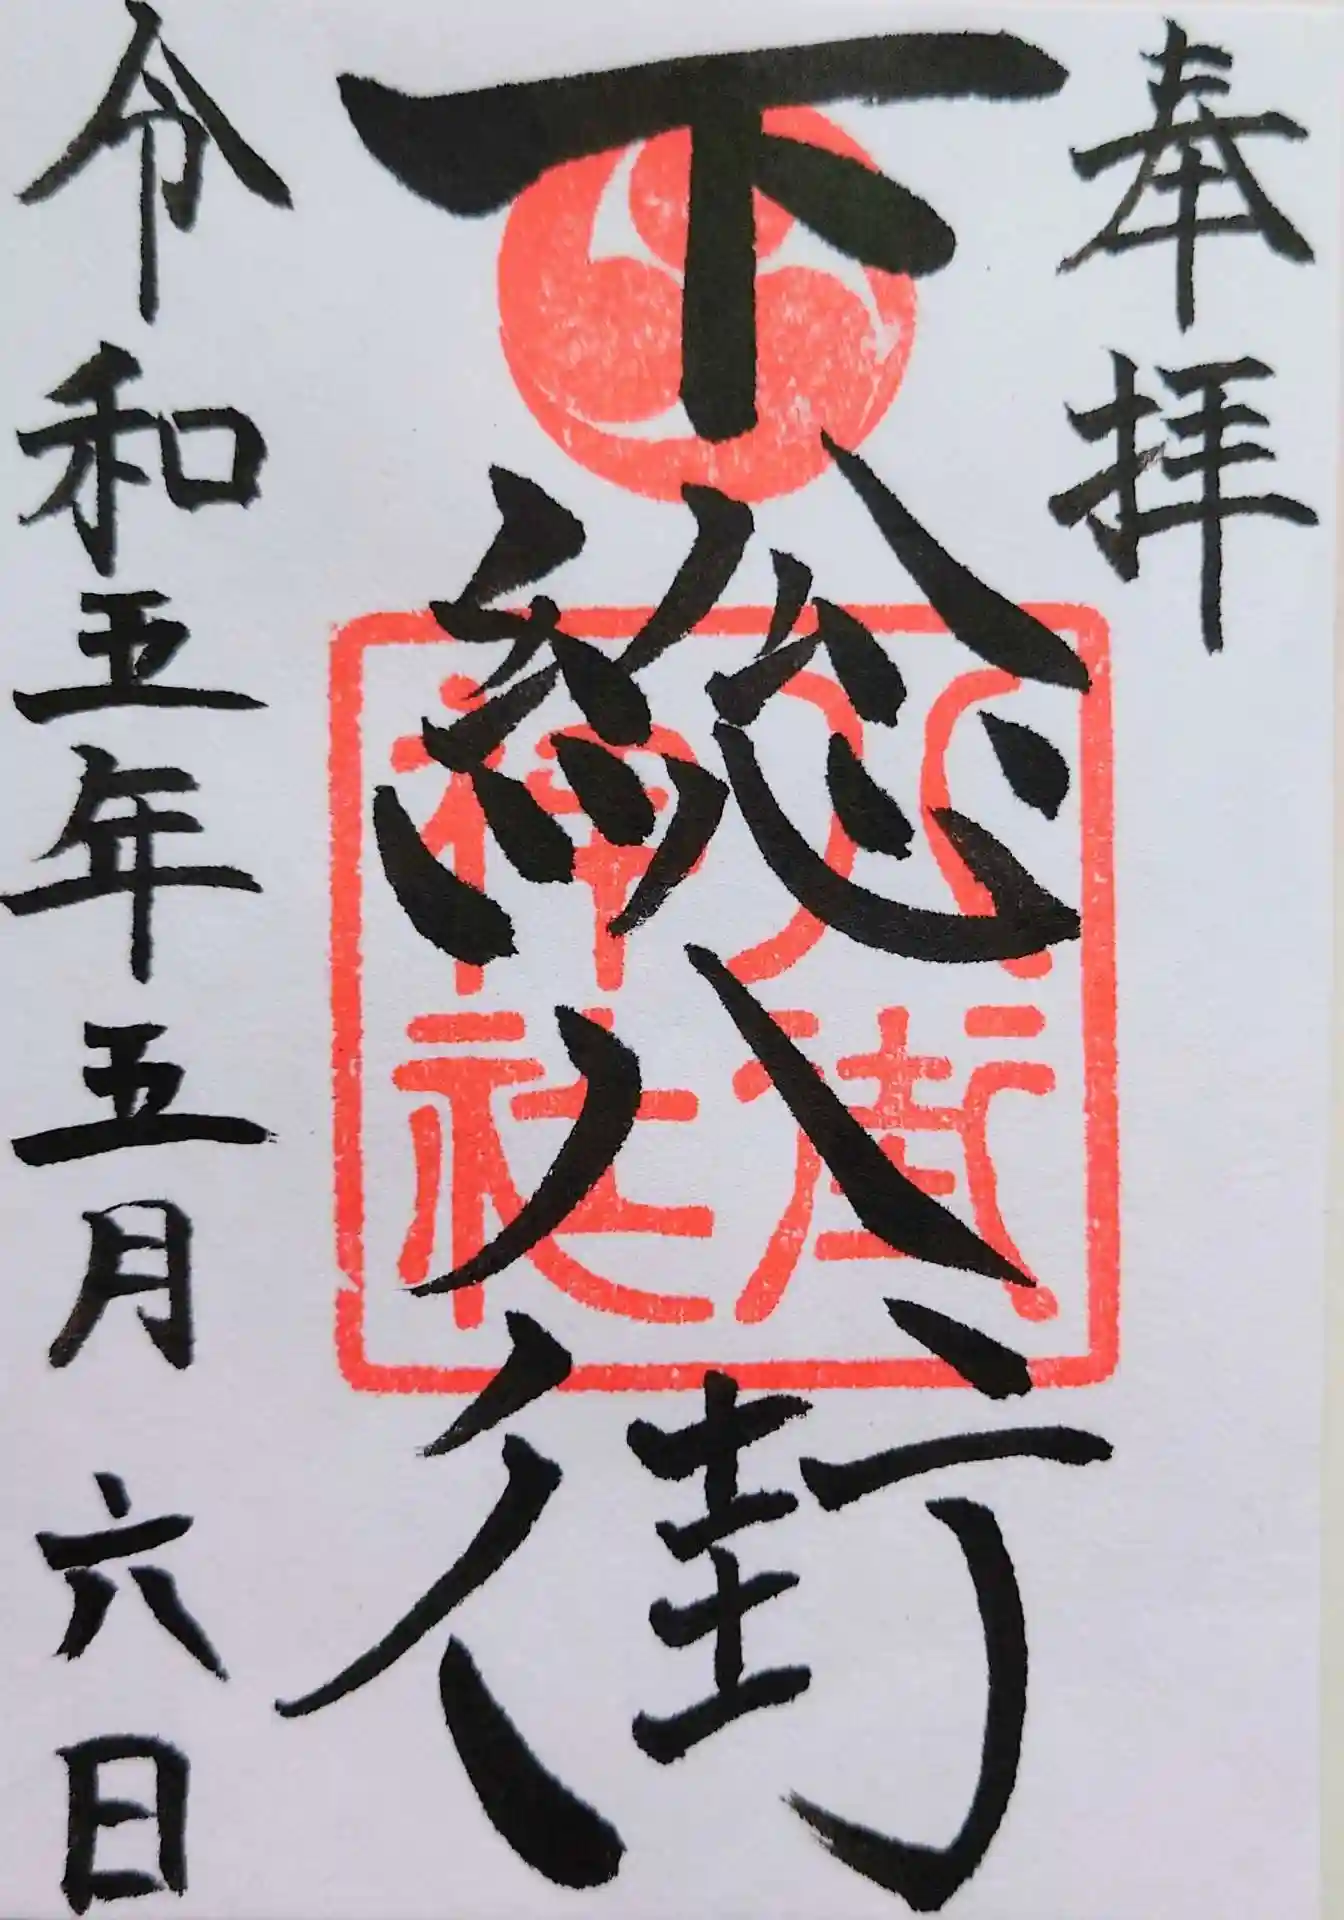 奉拝
下総八街
八街
神社
令和五年五月六日